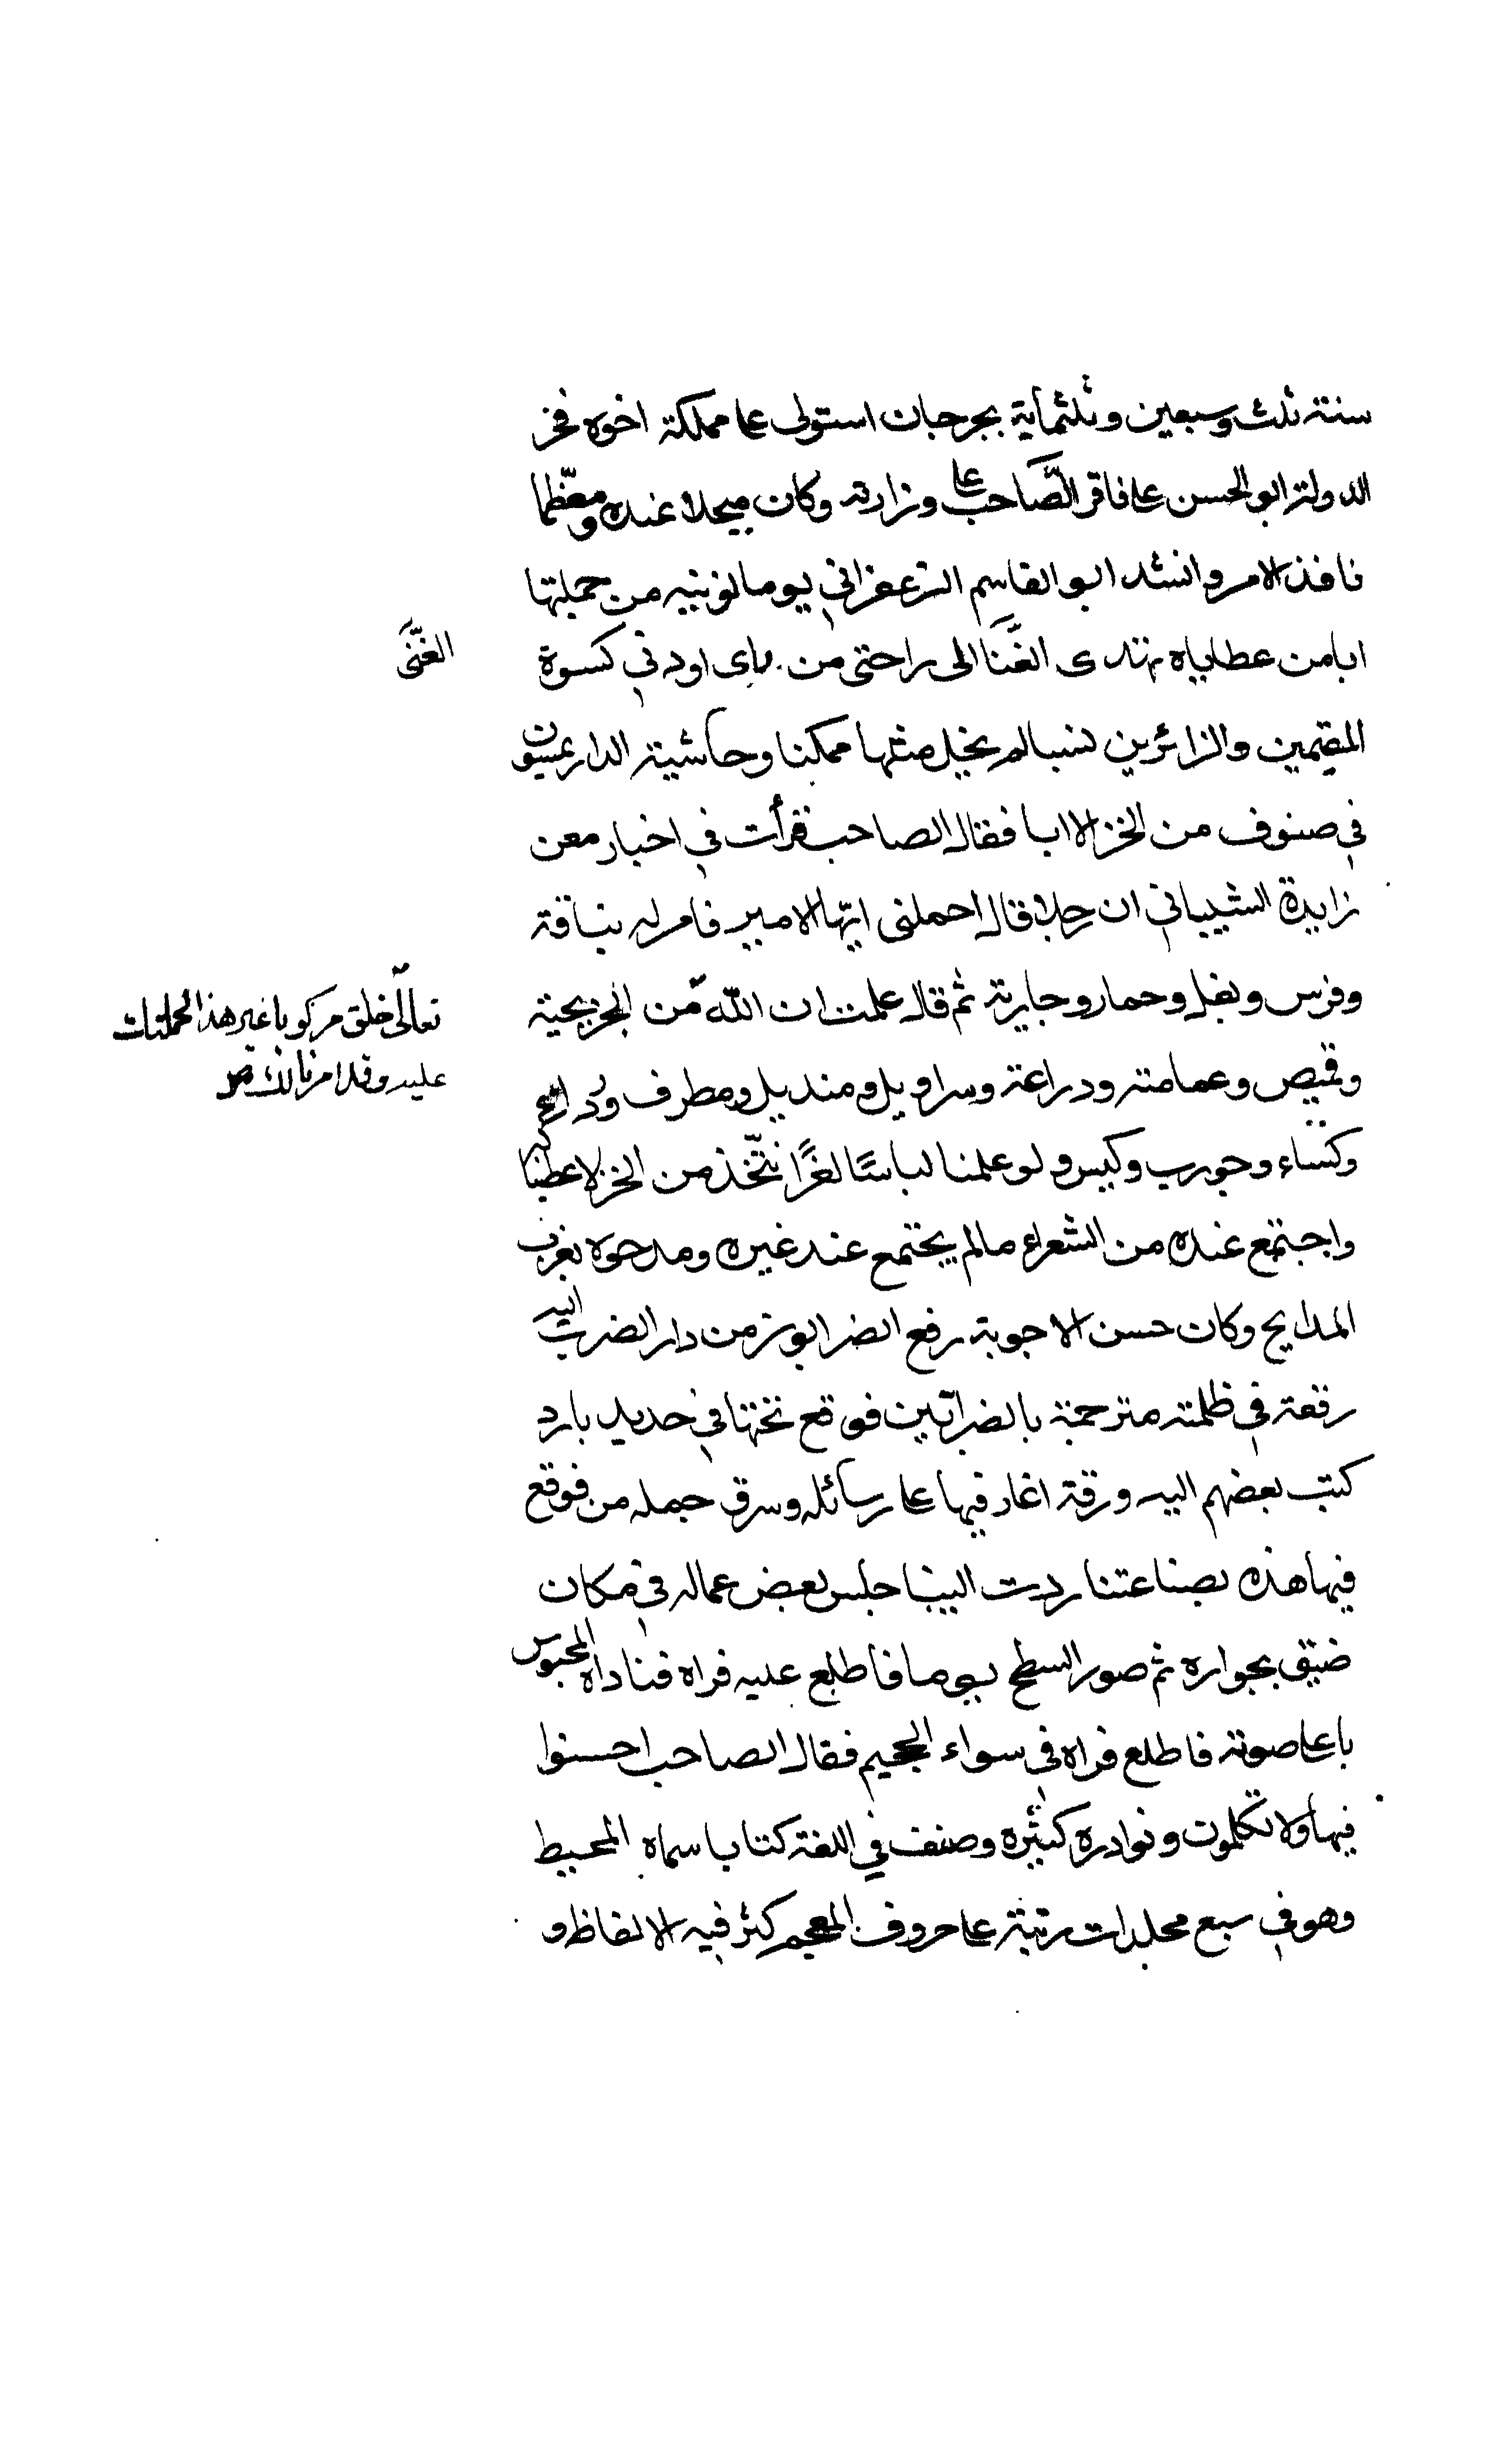 سنة ثلث وسبعين وثلثماية بجرجان استولى على مملكة اخوه فخر
الدولة ابو الحسن على فاقر الصاحب على وزارته وكان مبجلا عنده ومعظما
نافذ الامر وانشد ابو القاسم الزعفراني يوما نونيه من جملتها
ايا من عطاياه تهدى الغنا الى راحتى من اودني كسوة
الغنى
المقيمين والزائرين لم يخيل مثلها ممكنا وحاشية الدار يمسون
في صنوف من الخز الا ايا فقال الصاحب قرأت في اخبار معن
زايدة الشيباني ان رجلا قال احملنى ايها الامير فامر له بناقة
وفرس وبغل وحمار وجارية ثم قال علمت ان الله من الخز بجبة
تعالى خلق مركوبا غير هذا لحملتك
عليه وقد امرنا لك
وقميص وعمامة ودراعة وسراويل ومنديل ومطرف ورداء
وكساء وجورب وكيس ولو علمنا لباسا نتخذ من الخز لاعطيناكه
واجتمع عنده من الشعراء ما لم يجتمع عند غيره ومدحوه بغرر
المدايح وكان حسن الاجوبة رفع الضرابون من دار الضرب اليه
رقعة في ظلمة مترجمة بالضرابين فوقع تحتها في حديد بارد
كتب بعضهم اليه ورقة اغار فيها على رسائله وسرق جمله من فوقع
فيها هذه بضاعتنا ردت الينا حبس بعض عماله في مكان
ضيق بجواره ثم صور السطح يوما فاطلع عليه فراه فناداه المحبوس
باعلى صوته فاطلع فراه في سواء الجحيم فقال الصاحب احسنوا
فيها ولا تكلمون ونوادره كثيره وصنف في اللغة كتابا سماه المحيط
وهو في سبع مجلدات رتبة على حروف المعجم كثر فيه الالفاظ و